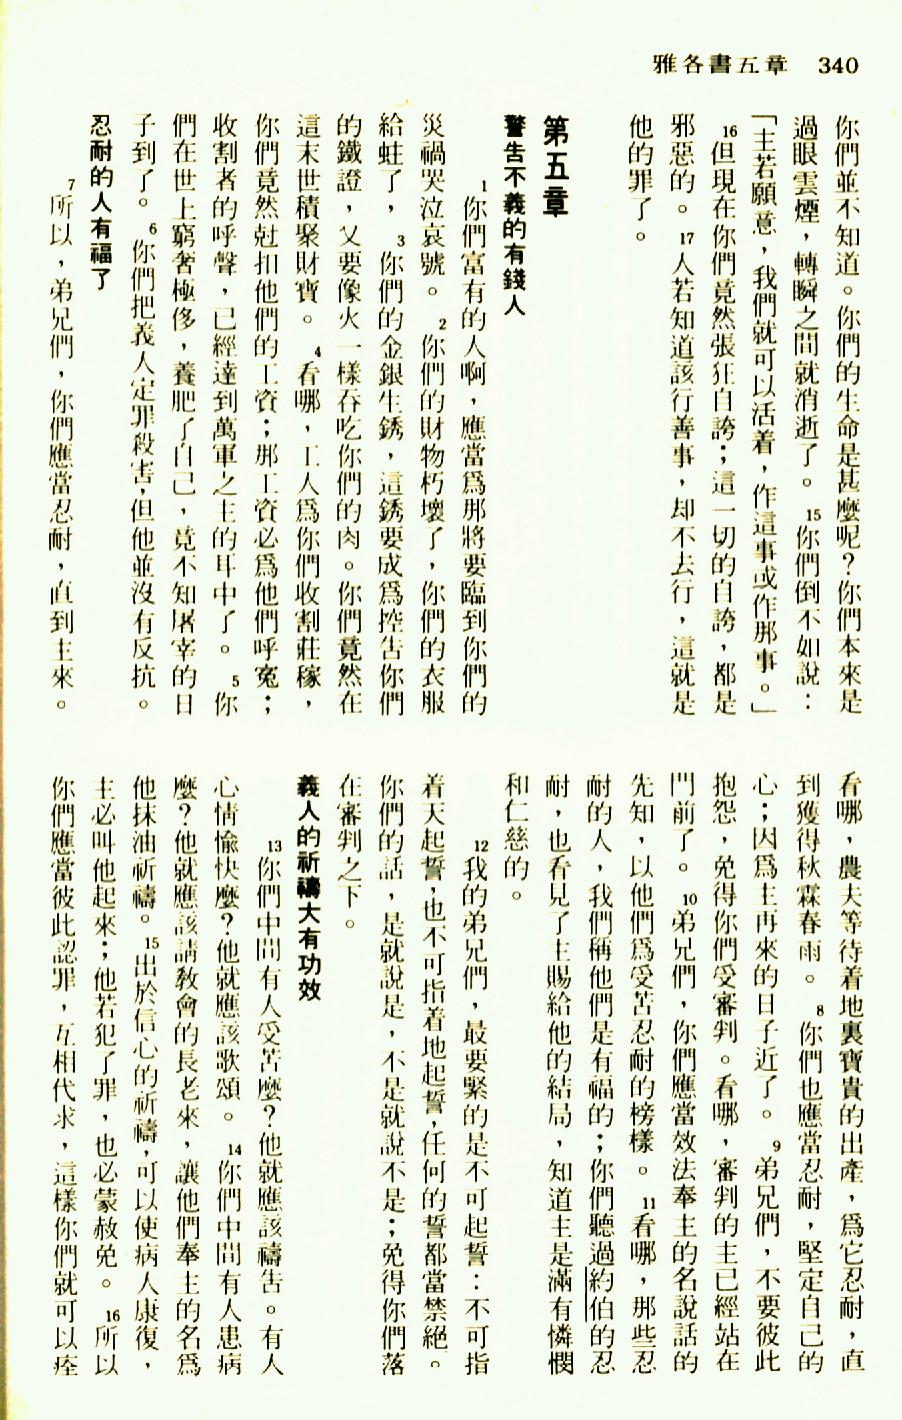 雅各書五章　340
你們並不知道。你們的生命是甚麼呢？你們本來是
過眼雲煙，轉瞬之間就消逝了。15你們倒不如說：
「主若願意，我們就可以活着，作這事或作那事。」
16但現在你們竟然張狂自誇；這一切的自誇，都是
邪惡的。17人若知道該行善事，却不去行，這就是
他的罪了。
第五章
警告不義的有錢人
1你們富有的人啊，應當爲那將要臨到你們的
災禍哭泣哀號。2你們的財物朽壞了，你們的衣服
給蛀了，3你們的金銀生銹，這銹要成爲控告你們
的鐵證，又要像火一樣吞吃你們的肉。你們竟然在
這末世積聚財寶。4看哪，工人爲你們收割莊稼，
你們竟然尅扣他們的工資；那工資必爲他們呼冤；
收割者的呼聲，已經達到萬軍之主的耳中了。5你
們在世上窮奢極侈，養肥了自己，竟不知屠宰的日
子到了。6你們把義人定罪殺害，但他並沒有反抗。
忍耐的人有福了
7所以，弟兄們，你們應當忍耐，直到主來。
看哪，農夫等待着地裏寶貴的出產，爲它忍耐，直
到獲得秋霖春雨。8你們也應當忍耐，堅定自己的
心；因爲主再來的日子近了。9弟兄們，不要彼此
抱怨，免得你們受審判。看哪，審判的主已經站在
門前了。10弟兄們，你們應當效法奉主的名說話的
先知，以他們爲受苦忍耐的榜樣。11看哪，那些忍
耐的人，我們稱他們是有福的；你們聽過約伯的忍
耐，也看見了主賜給他的結局，知道主是滿有憐憫
和仁慈的。
12我的弟兄們，最要緊的是不可起誓：不可指
着天起誓，也不可指着地起誓，任何的誓都當禁絕。
你們的話，是就說是，不是就說不是；免得你們落
在審判之下。
義人的祈禱大有功效
13你們中間有人受苦麼？他就應該禱告。有人
心情愉快麼？他就應該歌頌。14你們中間有人患病
麼？他就應該請教會的長老來，讓他們奉主的名爲
他抹油祈禱。15出於信心的祈禱，可以使病人康復，
主必叫他起來；他若犯了罪，也必蒙赦免。16所以
你們應當彼此認罪，互相代求，這樣你們就可以痊